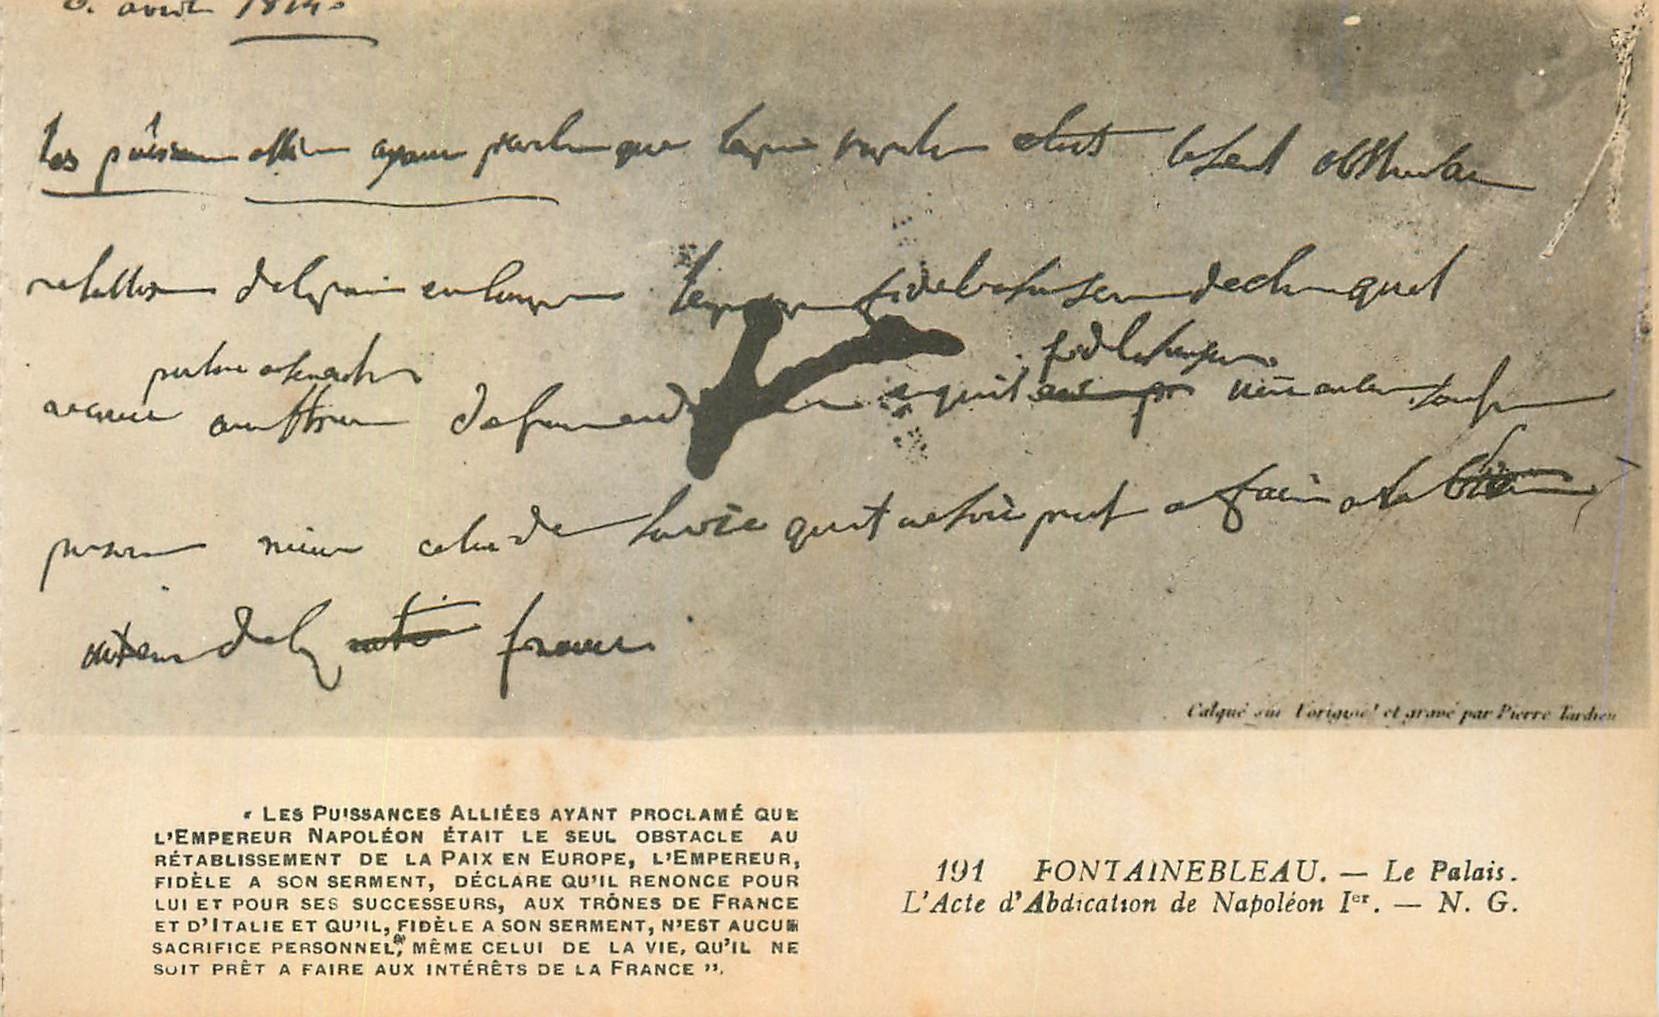 avril 1814
Les puissances alliées ayant proclamé que l'empereur napoléon etait le seul obstacle
retablissement de la paix en europe l'empereur fidele a son serment declare quil
pour lui et ses successeurs
fidele a son serment
renonce aux trones de france et quil nest aucun sacrifice
personnel meme celui de la vie quil ne soit pret a faire
interet de la france
Calqué sur l'original et gravé par Pierre Tardieu
« LES PUISSANCES ALLIÉES AYANT PROCLAMÉ QUE
L'EMPEREUR NAPOLÉON ÉTAIT LE SEUL OBSTACLE AU
RÉTABLISSEMENT DE LA PAIX EN EUROPE, L'EMPEREUR,
FIDÈLE A SON SERMENT, DÉCLARE QU'IL RENONCE POUR
LUI ET POUR SES SUCCESSEURS, AUX TRÔNES DE FRANCE
ET D'ITALIE ET QU'IL, FIDÈLE A SON SERMENT, N'EST AUCUN
SACRIFICE PERSONNEL, MÊME CELUI DE LA VIE, QU'IL NE
SOIT PRÊT A FAIRE AUX INTÉRÊTS DE LA FRANCE ».
191 FONTAINEBLEAU. — Le Palais.
L'Acte d'Abdication de Napoléon Ier. — N. G.